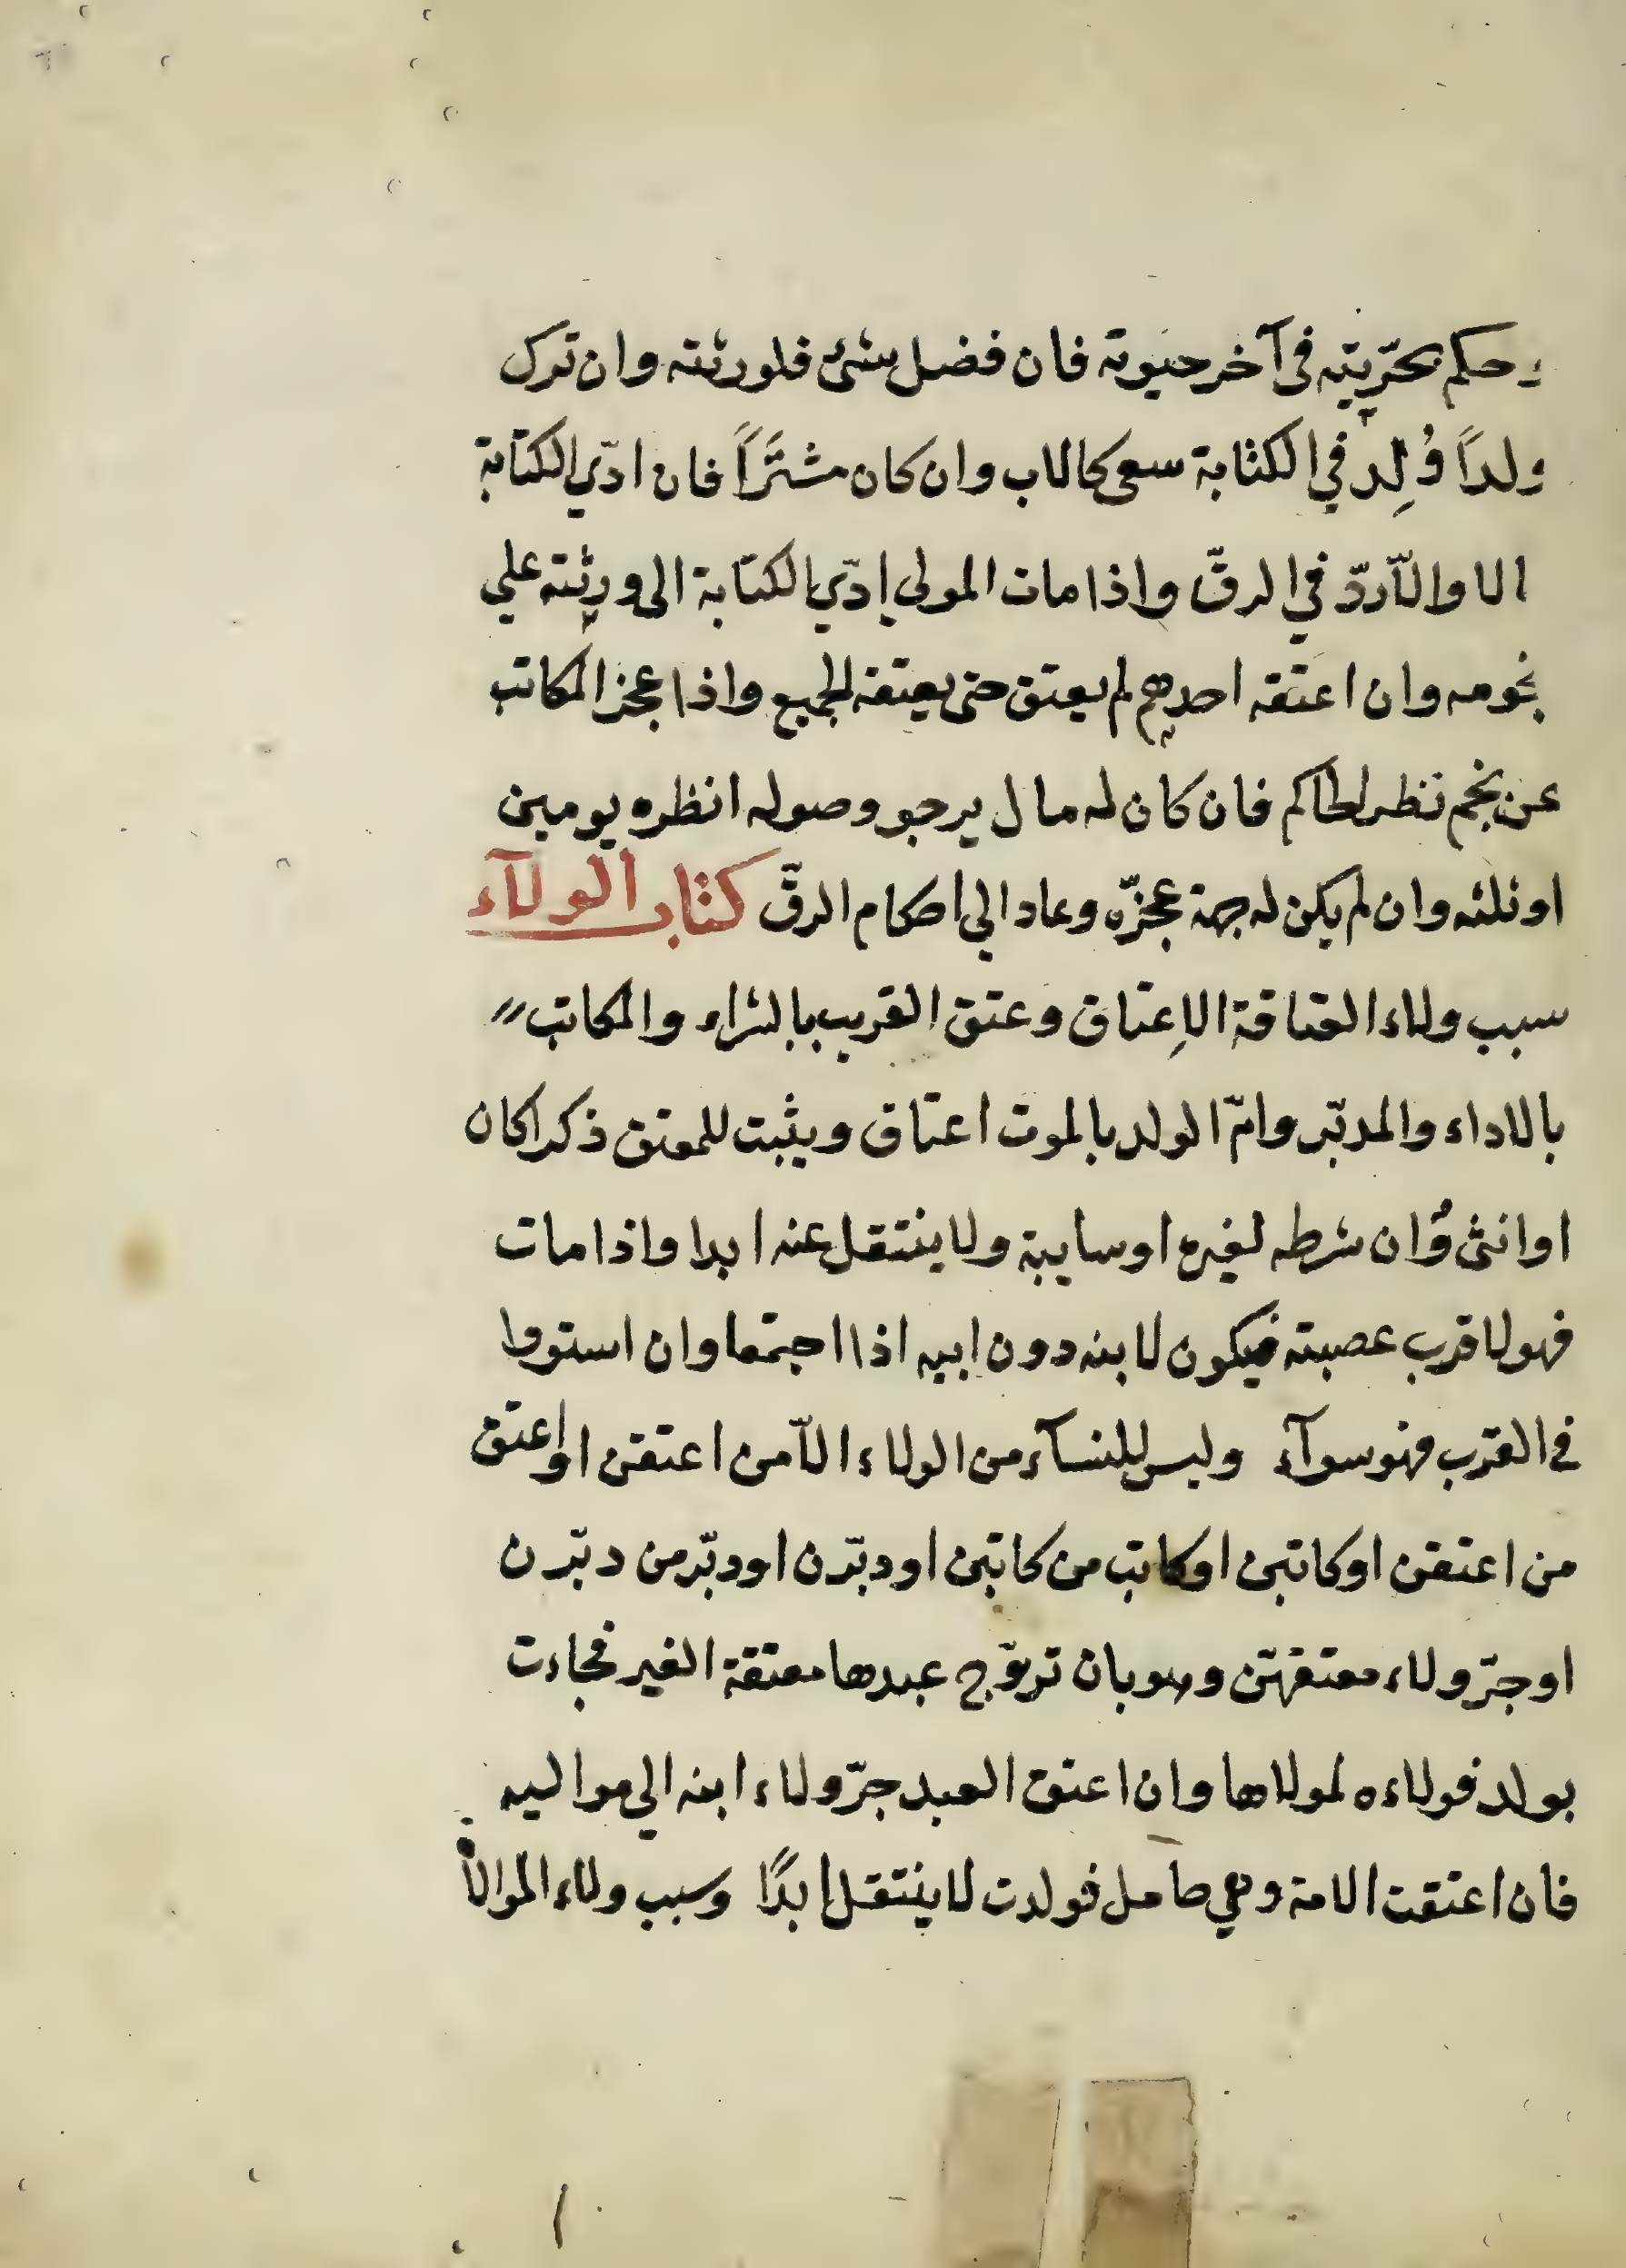 وحكم بحرّيته فى آخر حيوته فان فضل شئ فلورثته وان ترك
ولداً وُلِد في الكتابة سعى كالاب وان كان مشتراً فان ادّي الكتابة
الا والّا ردّ في الرقّ واذا مات المولى ادّي الكتابة الى ورثته علي
نجومه وان اعتقه احدهم لم يعتق حتى يعتقه الجميع واذا عجز المكاتب
عن نجم نظر الحاكم فان كان له مال يرجو وصوله انظره يومين
او ثلثه وان لم يكن له جهة عجزّه وعاد الي احكام الرقّ كتاب الولآء
سبب ولاء العتاقة الاِعتاق وعتق القريب بالشراء والمكاتب
بالاداء والمدبّر وامّ الولد بالموت اعتاق ويثبت للمعتق ذكرا كان
او انثى وُان شرطه لغيره او سايبة ولا ينتقل عنه ابدا واذا مات
فهو لاقرب عصبته فيكون لابنه دون ابيه اذا اجتمعا وان استووا
فى القرب فهو سوآء وليس للنسآء من الولاء الّا من اعتقن او اعتق
من اعتقن او كاتبن او كاتب من كاتبن او دبّرن او دبّر من دبّرن
او جرّ ولاء معتقهنّ وهو بان تزوّج عبدها معتقة الغير فجاءت
بولد فولاءه لمولاها وان اعتق العبد جرّ ولاء ابنه الي مواليه
فان اعتقت الامة وهي حامل فولدت لا ينتقل ابدًا وسبب ولاء الموالاة